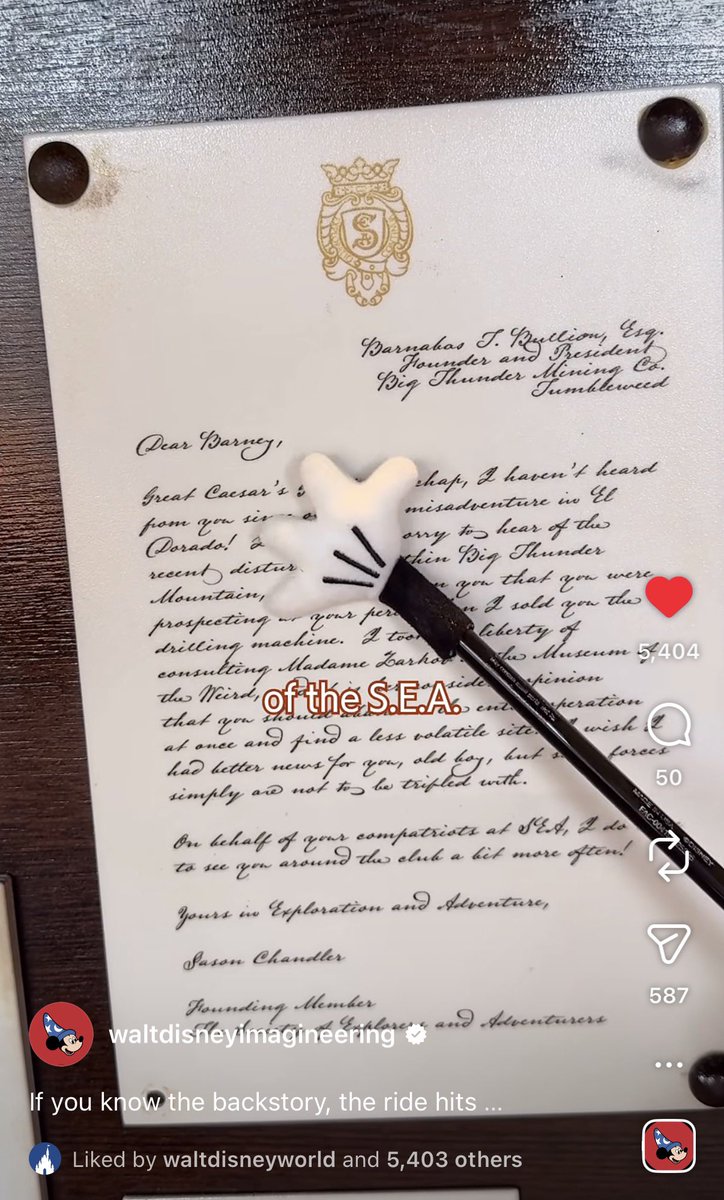 S
Barnabas T. Bullion, Esq.
Founder and President
Big Thunder Mining Co.
Tumbleweed
Dear Barney,
Great Caesar's chap, I haven't heard
from you misadventure in El
Dorado! orry to hear of the
recent distur thin Big Thunder
Mountain, you that you were
prospecting at your per I sold you the
drilling machine. I took liberty of
consulting Madame Zarkov the Museum of
the Weird, opinion
that you should operation
at once and find a less volatile site. I wish I
had better news for you, old boy, but forces
simply are not to be trifled with.
of the S.E.A.
On behalf of your compatriots at SEA, I do
to see you around the club a bit more often!
Yours in Exploration and Adventure,
Jason Chandler
Founding Member
of Explorers and Adventurers
5,404
50
587
waltdisneyimagineering
If you know the backstory, the ride hits ...
Liked by waltdisneyworld and 5,403 others